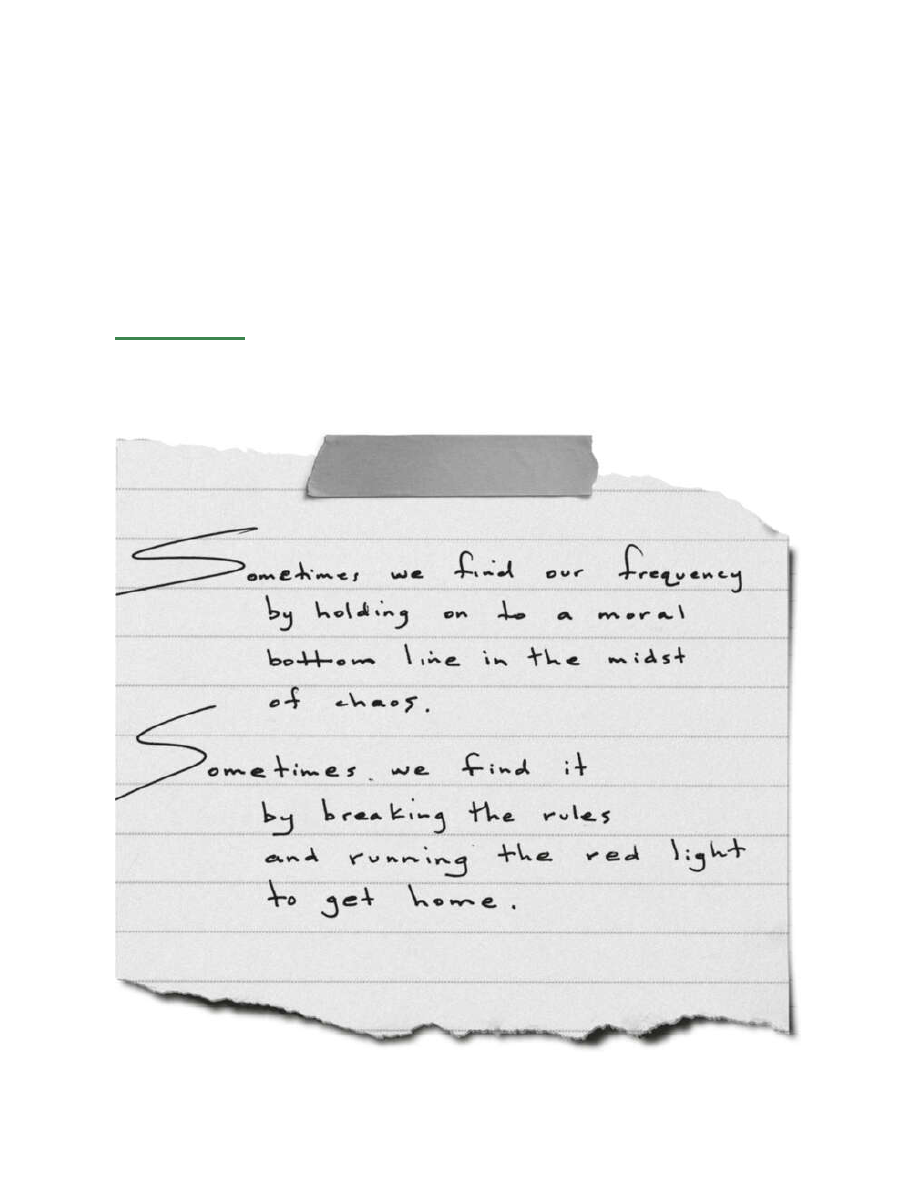 Sometimes we find our frequency
by holding on to a moral
bottom line in the midst
of chaos.
Sometimes we find it
by breaking the rules
and running the red light
to get home.